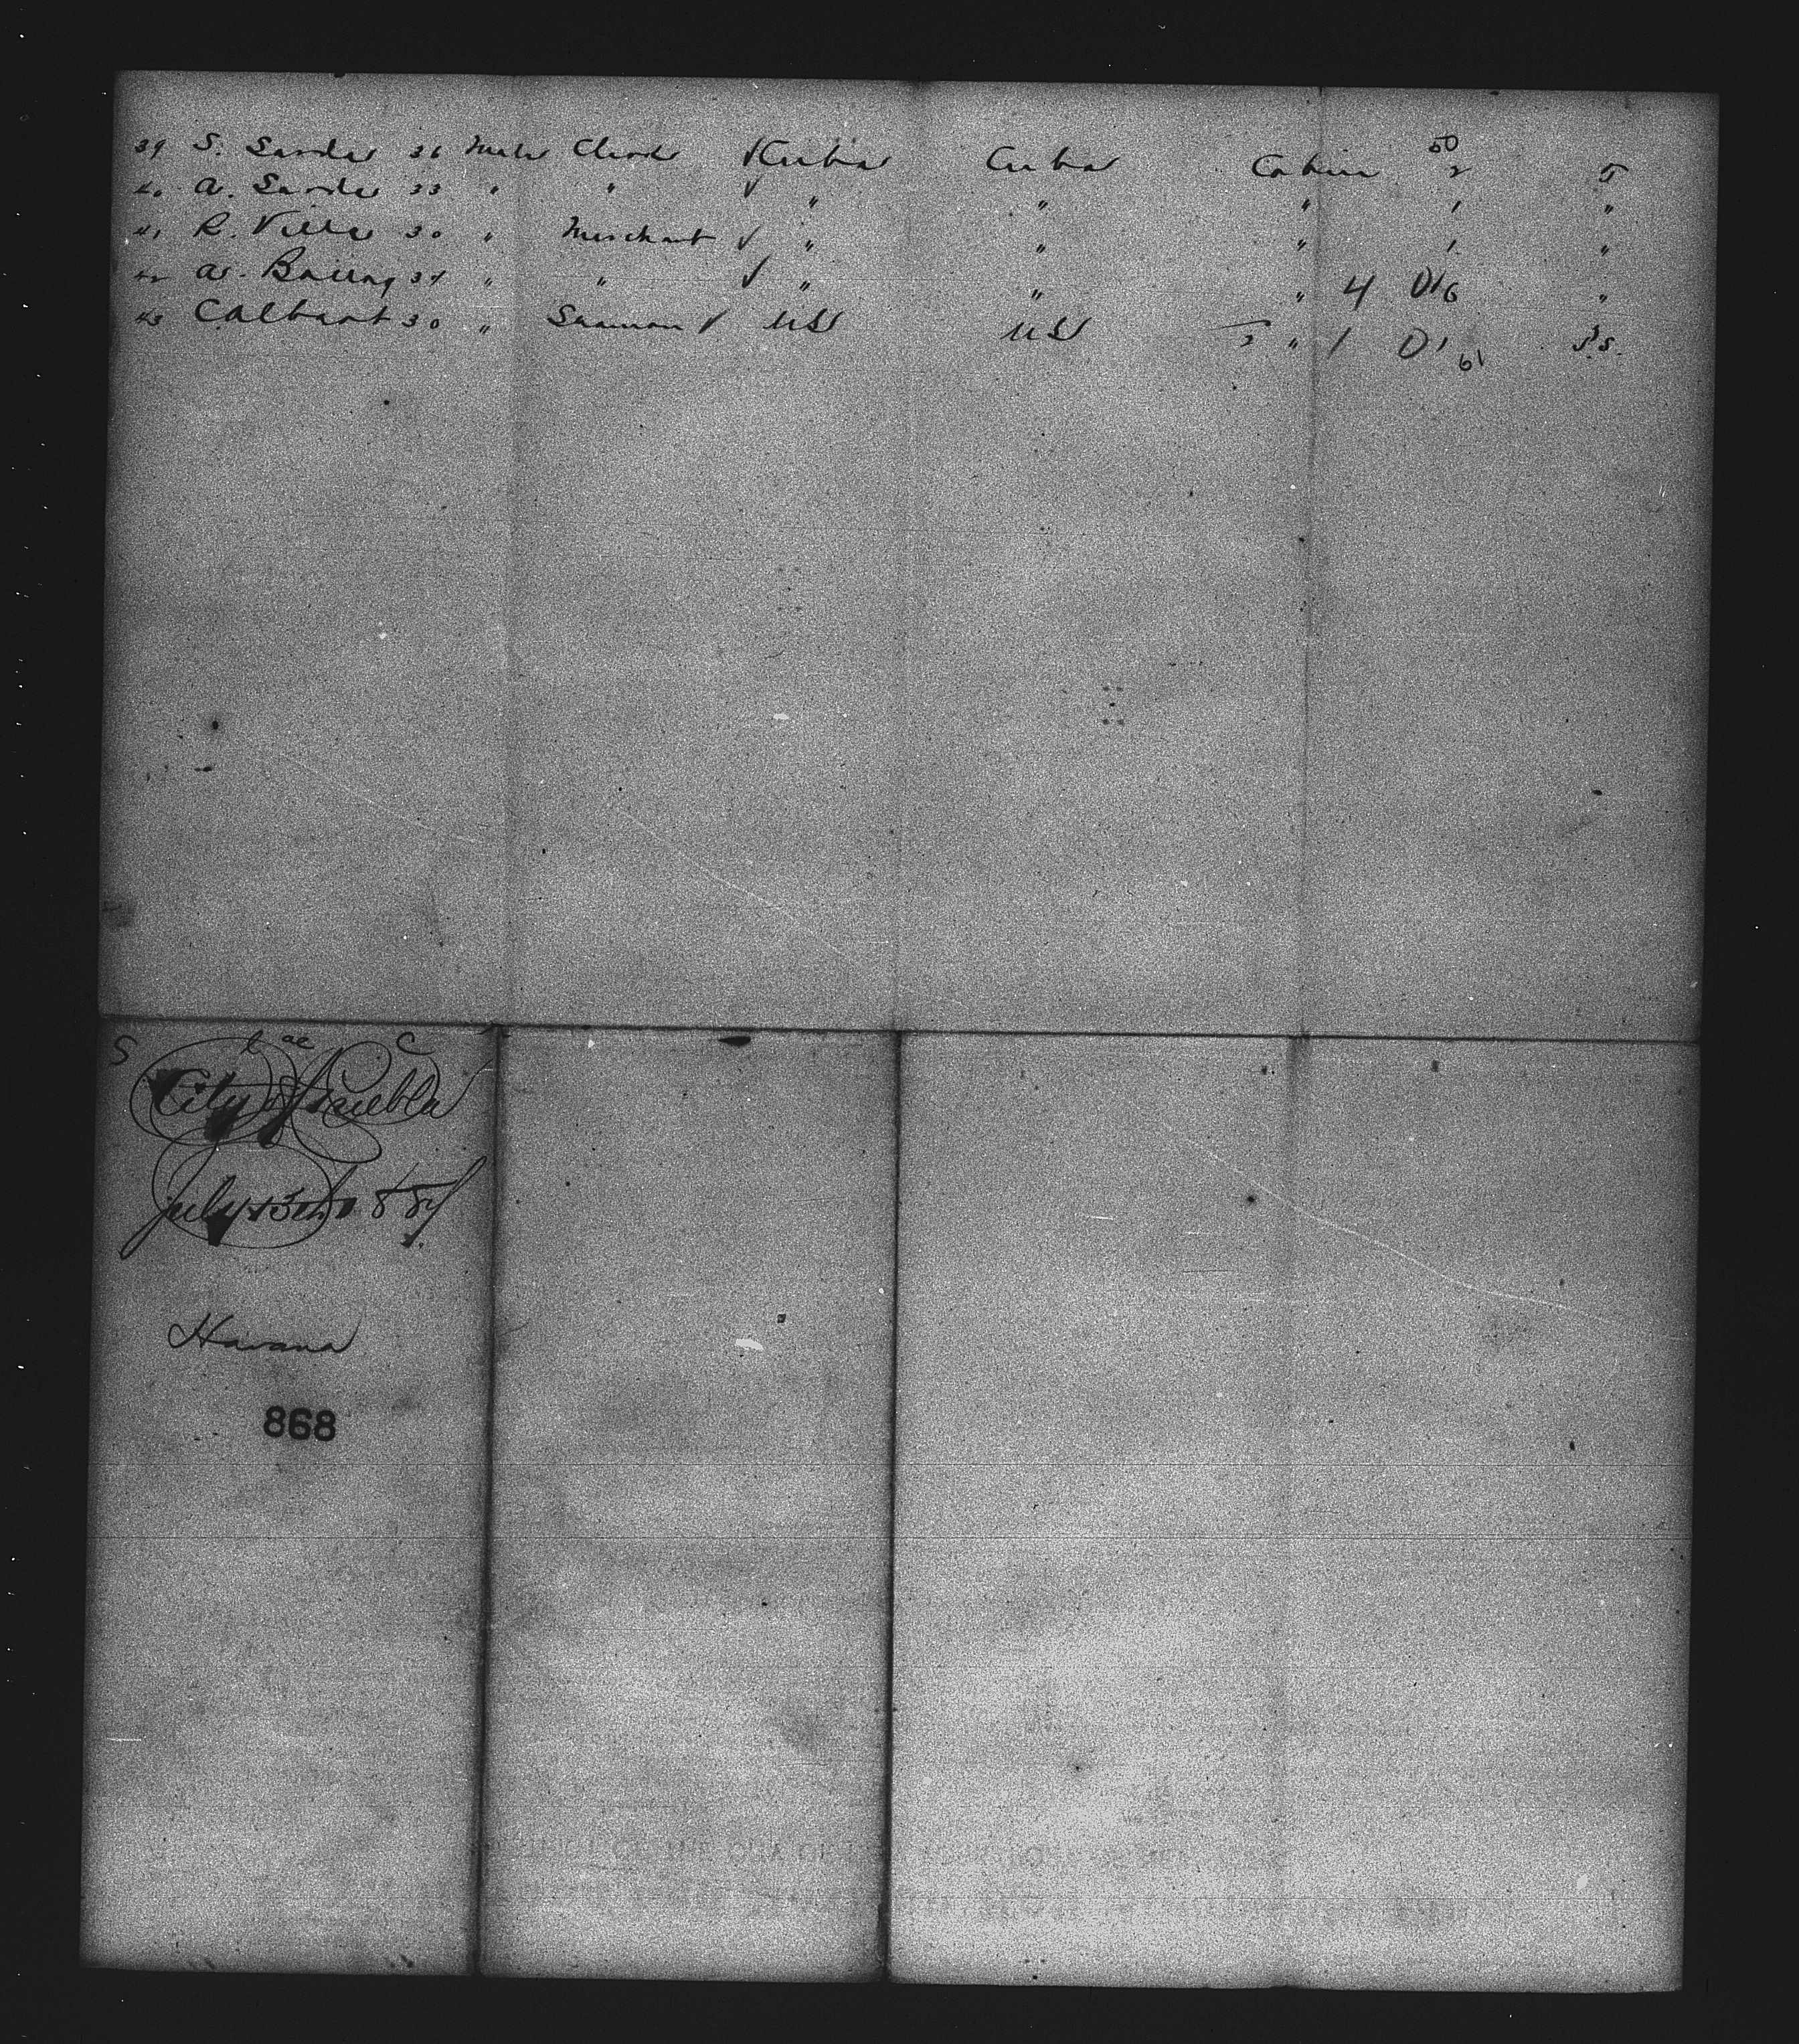 39 S. Sarde 36 Male Clerk ✓ Cuba Cuba Cabin 2 T
40 A. Sarde 33 " " ✓ " " " 1 "
41 R. Villa 30 " Merchant ✓ " " " 1 "
42 A. 34 " " ✓ " " " 4 "
43 C Albert 30 " Seaman ✓ US US " 1 S.S.
S C
City of Puebla
July 13th 1887.
Havana
868